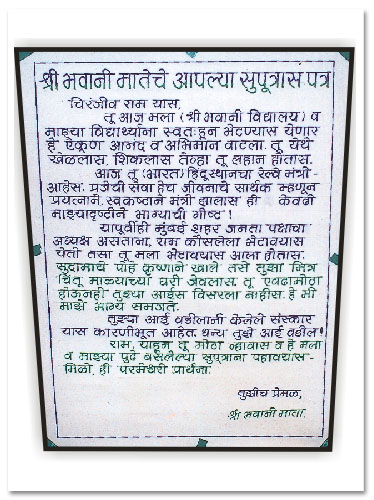 श्री भवानी मातेचे आपल्या सुपूत्रास पत्र
चिरंजीव राम यास,
तू आज मला (श्री भवानी विद्यालय) व
माझ्या विद्यार्थ्यांना स्वतःहून भेटण्यास येणार
हे ऐकूण आनंद व अभिमान वाटला. तू येथे
खेळलास, शिकलास तेव्हा तू लहान होतास.
आज तू (भारत) हिंदूस्थानचा रेल्वे मंत्री-
आहेस. प्रजेची सेवा हेच जीवनाचे सार्थक म्हणून
प्रयत्नाने, स्वकष्टाने मंत्री झालास ही केवढी
माझ्यादृष्टीने भाग्याची गोष्ट!
यापूर्वीही मुंबई शहर जनता पक्षाचा
अध्यक्ष असताना, राम कोसलेला भेटावयास
येतो तसा तू मला भेटावयास आला होतास.
सुदामाचे पोहे कृष्णाने खाले तसे तुझा मित्र
चिंतू माळ्याच्या घरी जेवलास. तू एवढामोठा
होऊनही तुझ्या आईस विसरला नाहीस. हे मी
माझे भाग्य समजते.
तुझ्या आई वडीलांनी केलेले संस्कार
यास कारणीभूत आहेत. धन्य तुझे आई वडील!
राम, याहून तू मोठा व्हावास व हे मला
व माझ्या पुढे बसलेल्या सुपूत्रांना पहावयास-
मिळो. ही परमेश्वरी प्रार्थना.
तुझीच प्रेमळ,
श्री भवानी माता.